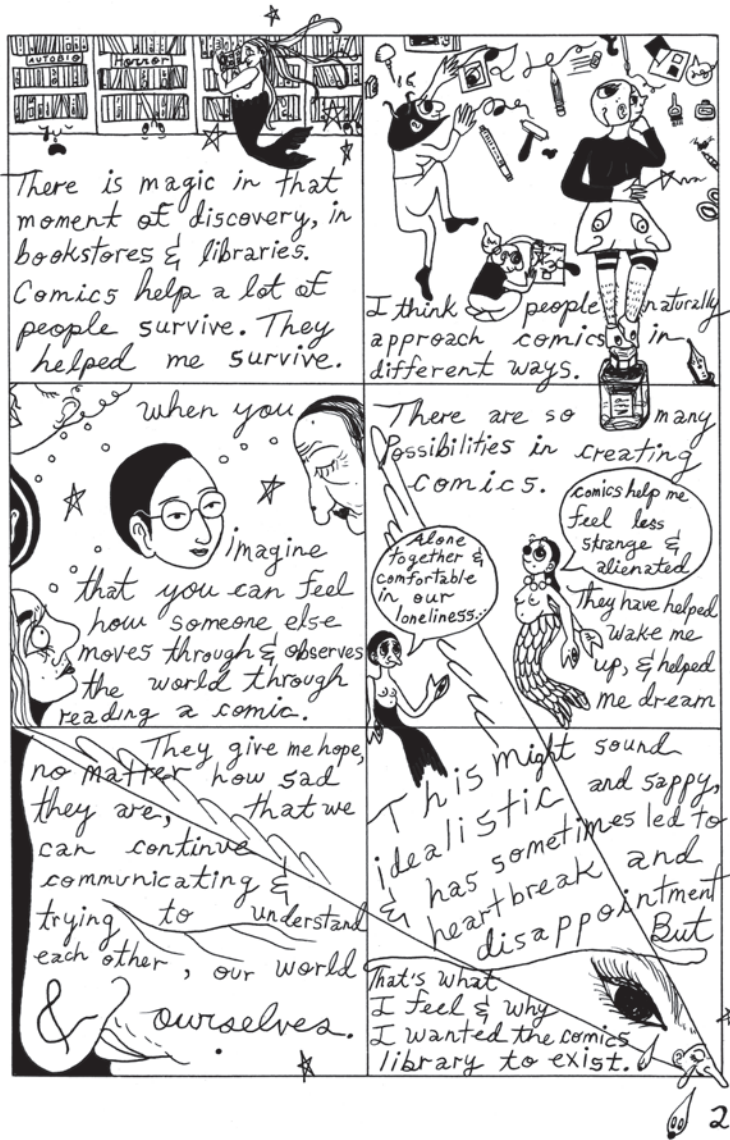 AUTOBIO
Horror
There is magic in that
moment of discovery, in
bookstores & libraries.
Comics help a lot of
people survive. They
helped me survive.
I think people naturally
approach comics in
different ways.
when you
imagine
that you can feel
how someone else
moves through & observes
the world through
reading a comic.
There are so many
Possibilities in creating
comics.
comics help me
feel less
strange &
alienated
Alone
together &
comfortable
in our
loneliness...
They have helped
wake me
up, & helped
me dream
They give me hope,
no matter how sad
they are, that we
can continue
communicating &
trying to understand
each other, our world
& ourselves.
This might sound
idealistic and sappy,
& has sometimes led to
heartbreak and
disappointment
But
That's what
I feel & why
I wanted the comics
library to exist.
2